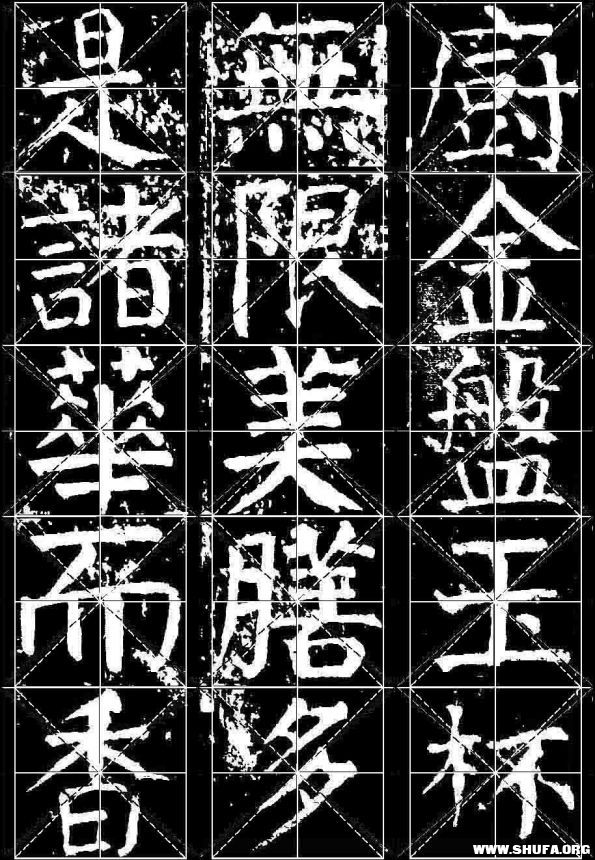 廚金盤玉杯
無限美膳多
是諸華而香
WWW.SHUFA.ORG